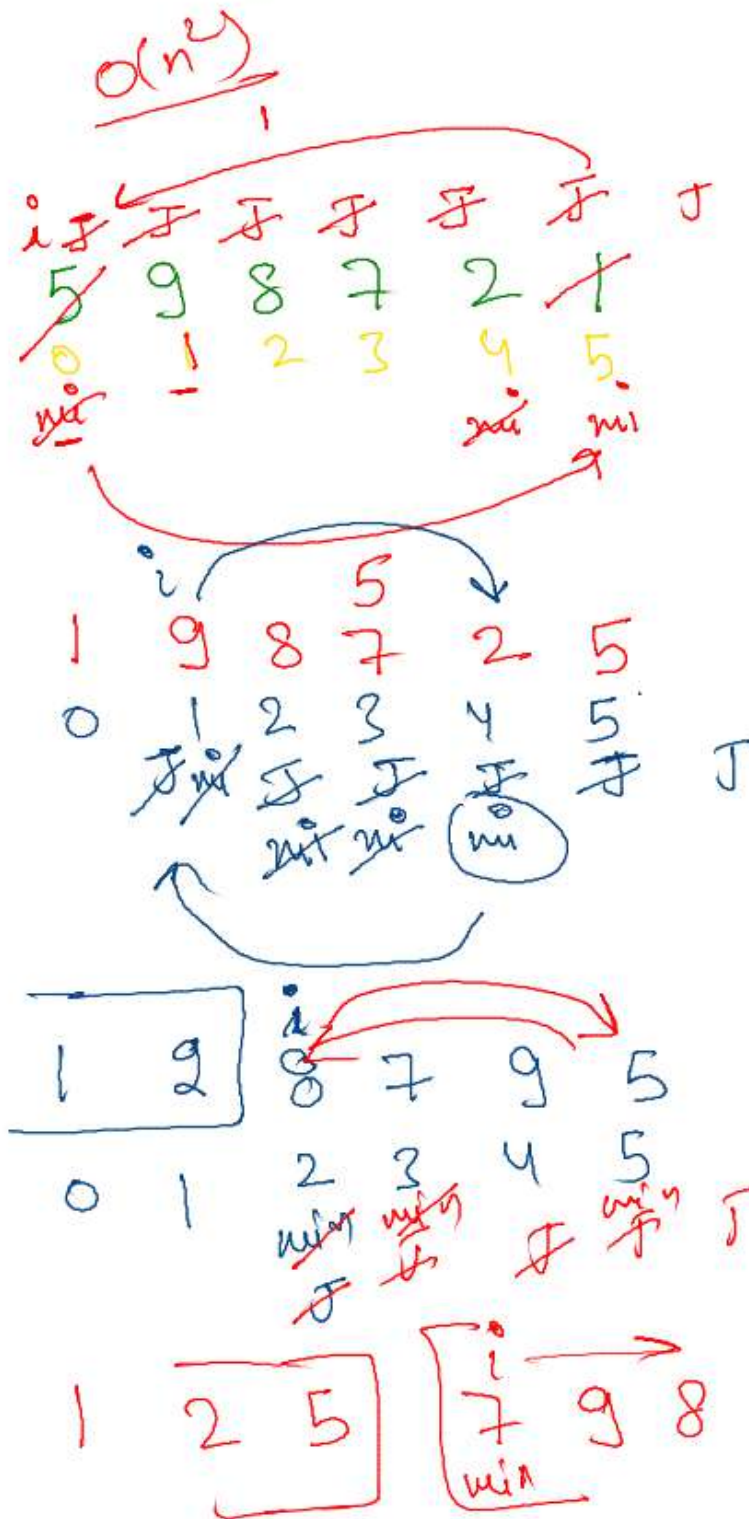 O(n²)
1
i J J J J J J J
5 9 8 7 2 1
0 1 2 3 4 5
mi mi mi
i 5
1 9 8 7 2 5
0 1 2 3 4 5
J mi J J J J J
mi mi mi
i
1 2 8 7 9 5
0 1 2 3 4 5
min min min
J J J J J
i
1 2 5 7 9 8
min